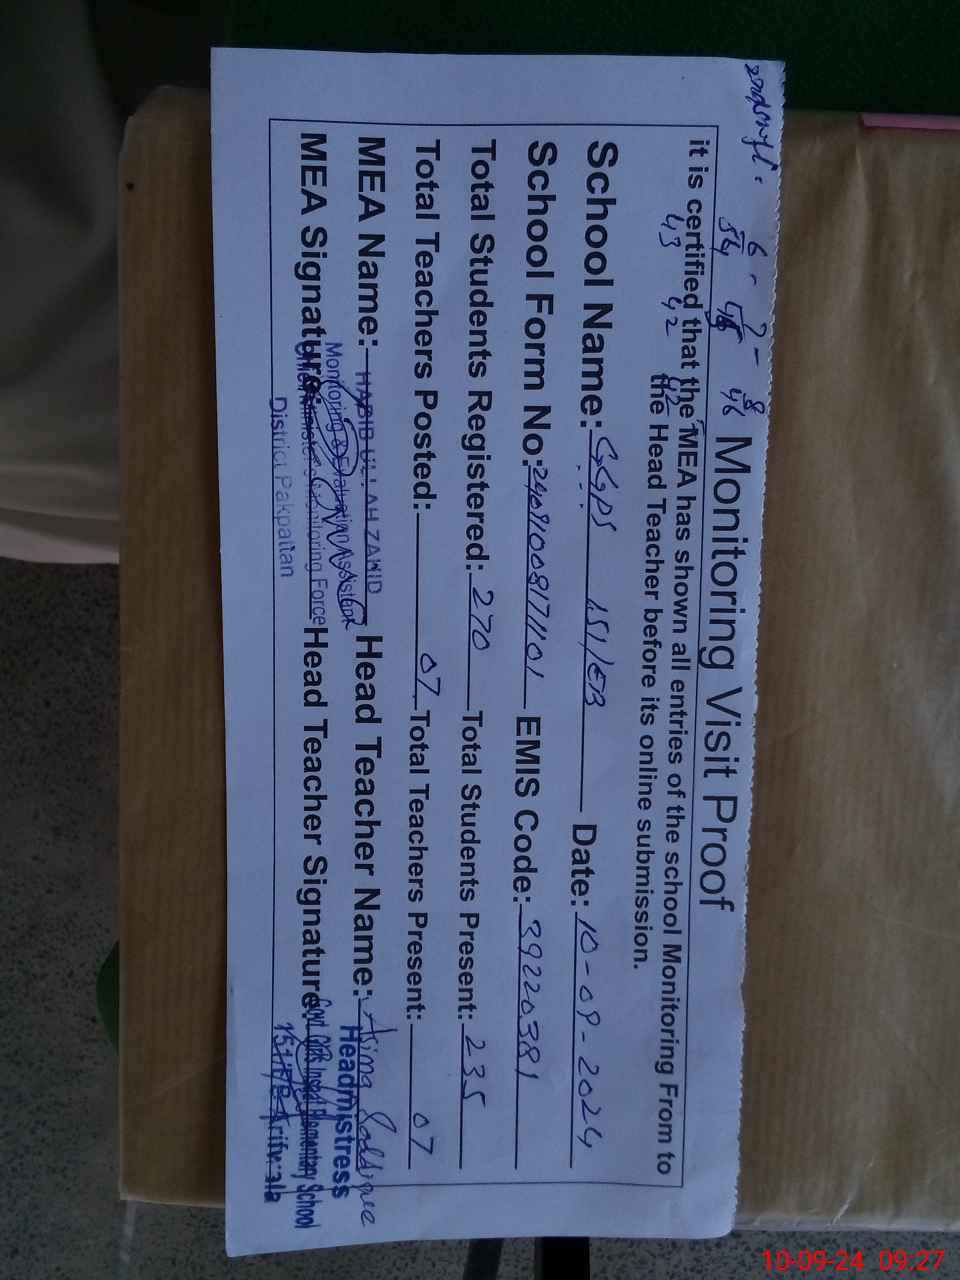 6 - 7 - 8
54 46
43 42 42
Monitoring Visit Proof
it is certified that the MEA has shown all entries of the school Monitoring From to
the Head Teacher before its online submission.
School Name: GGPS 151/EB Date: 10-09-2024
School Form No: EMIS Code: 39220381
Total Students Registered: 270 Total Students Present: 235
Total Teachers Posted: 07 Total Teachers Present: 07
MEA Name: HABIB ULLAH ZAHID Head Teacher Name: Asima
Monitoring & Evaluation Assistant
Headmistress
MEA Signature Monitoring Force Head Teacher Signature: Govt. Elementary School
District Pakpattan
151/EB Arifwala
10-09-24 09:27